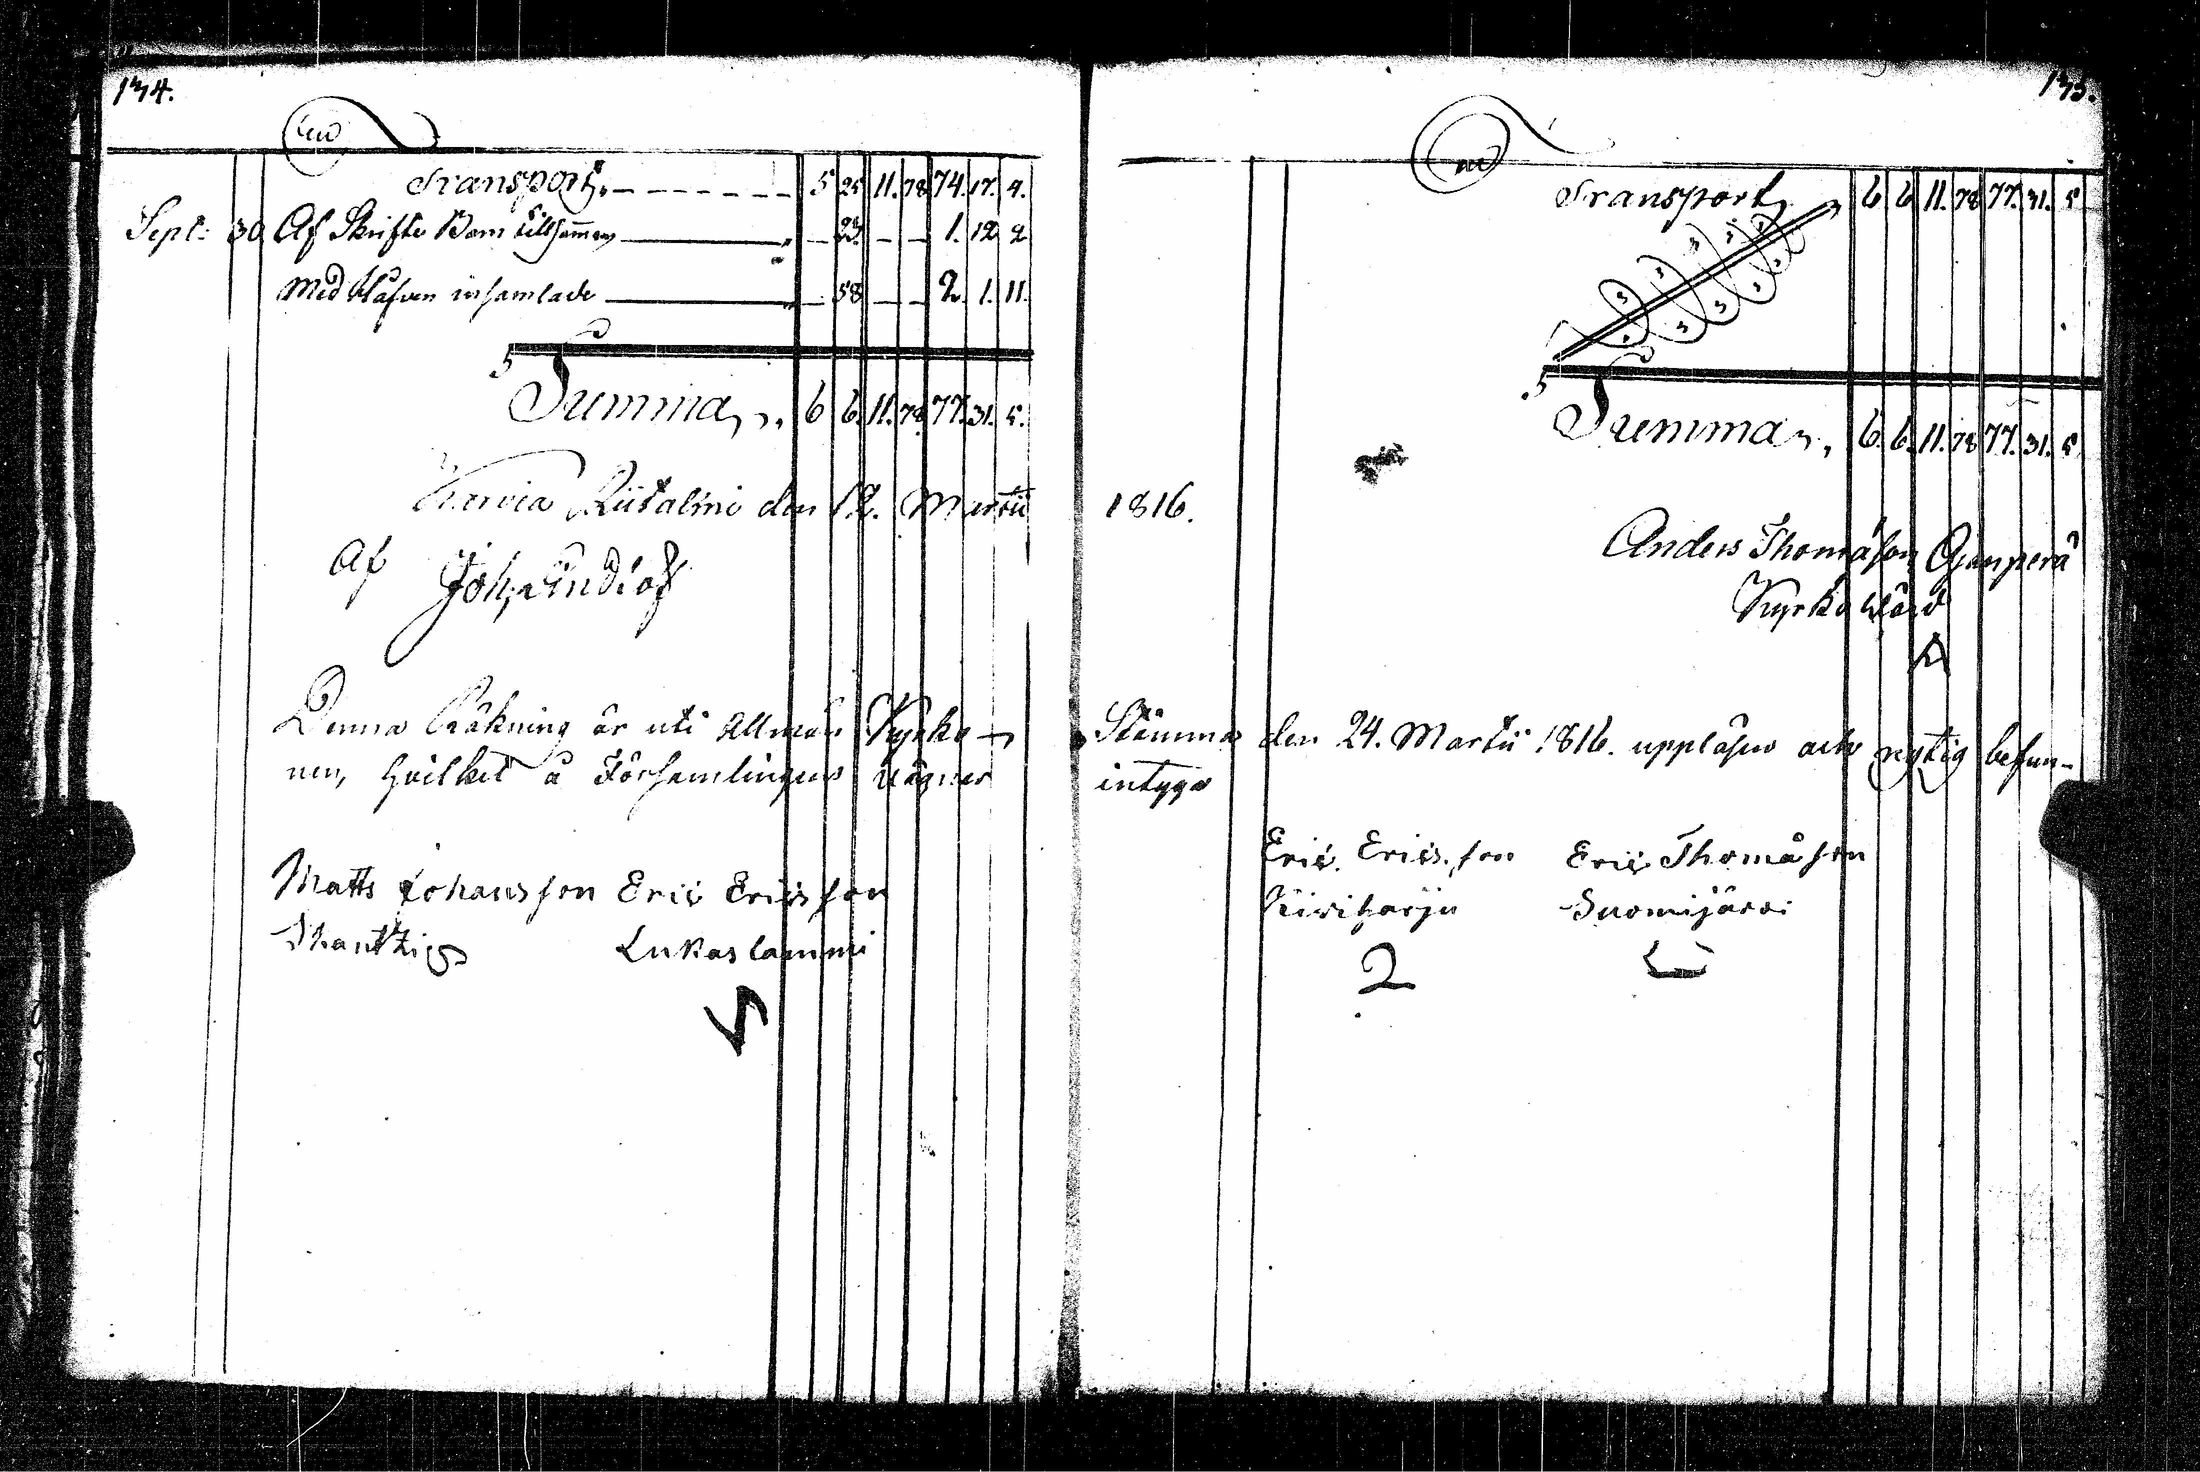 134.
Transport. 5 25 11. 78 74. 17. 4.
Sept: 30 Af Skrifte Barn tillsamman 23. 1. 12 2
Med Håfven insamlade 58 2. 1. 11.
Summa 6 6. 11. 78 77. 31. 5.
Karvia Riitalmi den 12. Martii
Af Joh, Lindlöf
Denna Räkning är uti Allmän Kyrko-
nen, hvilket å Församlingens vägnar
Matts Johansson Eric Ericsson
Skantzi Lukaslammi
135.
Transport 6 6 11. 78 77. 31. 5
Summa 6. 6. 11. 78 77. 31. 5
1816.
Anders Thomasson Ojanperä
Kyrkowärd
Stämma den 24. Martii 1816. uppläsen och rigtig befun-
intyga
Eric. Ericsson Eric Thomasson
Kiviharju Suomijärvi